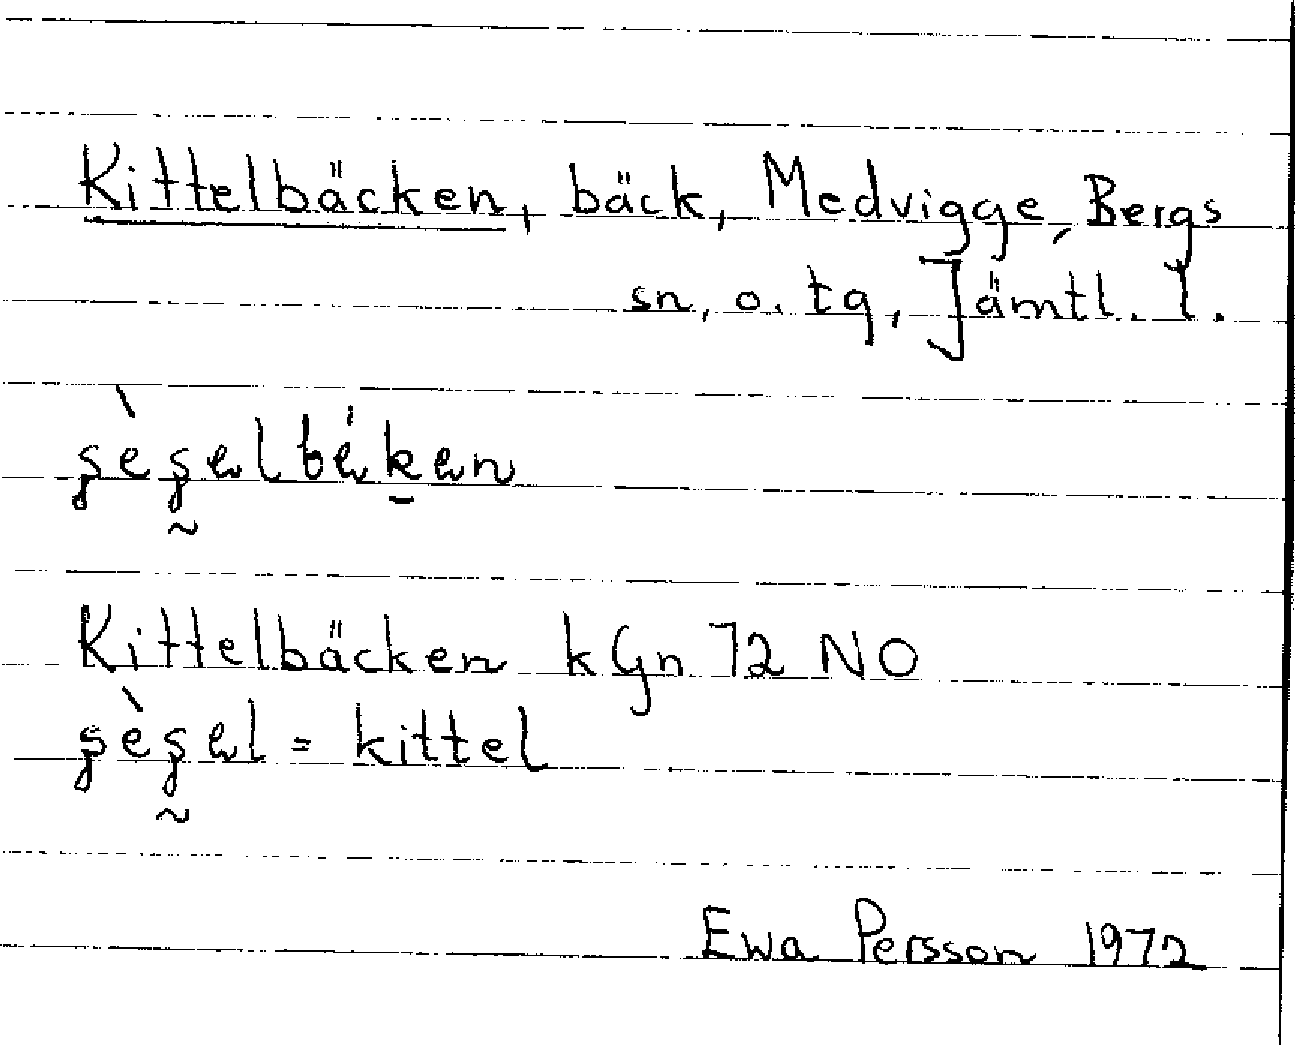 Kittelbäcken, bäck, Medvigge, Bergs
sn, o. tg, Jämtl. l.
Kittelbäcken kGn 72 NO
= kittel
Ewa Persson 1972